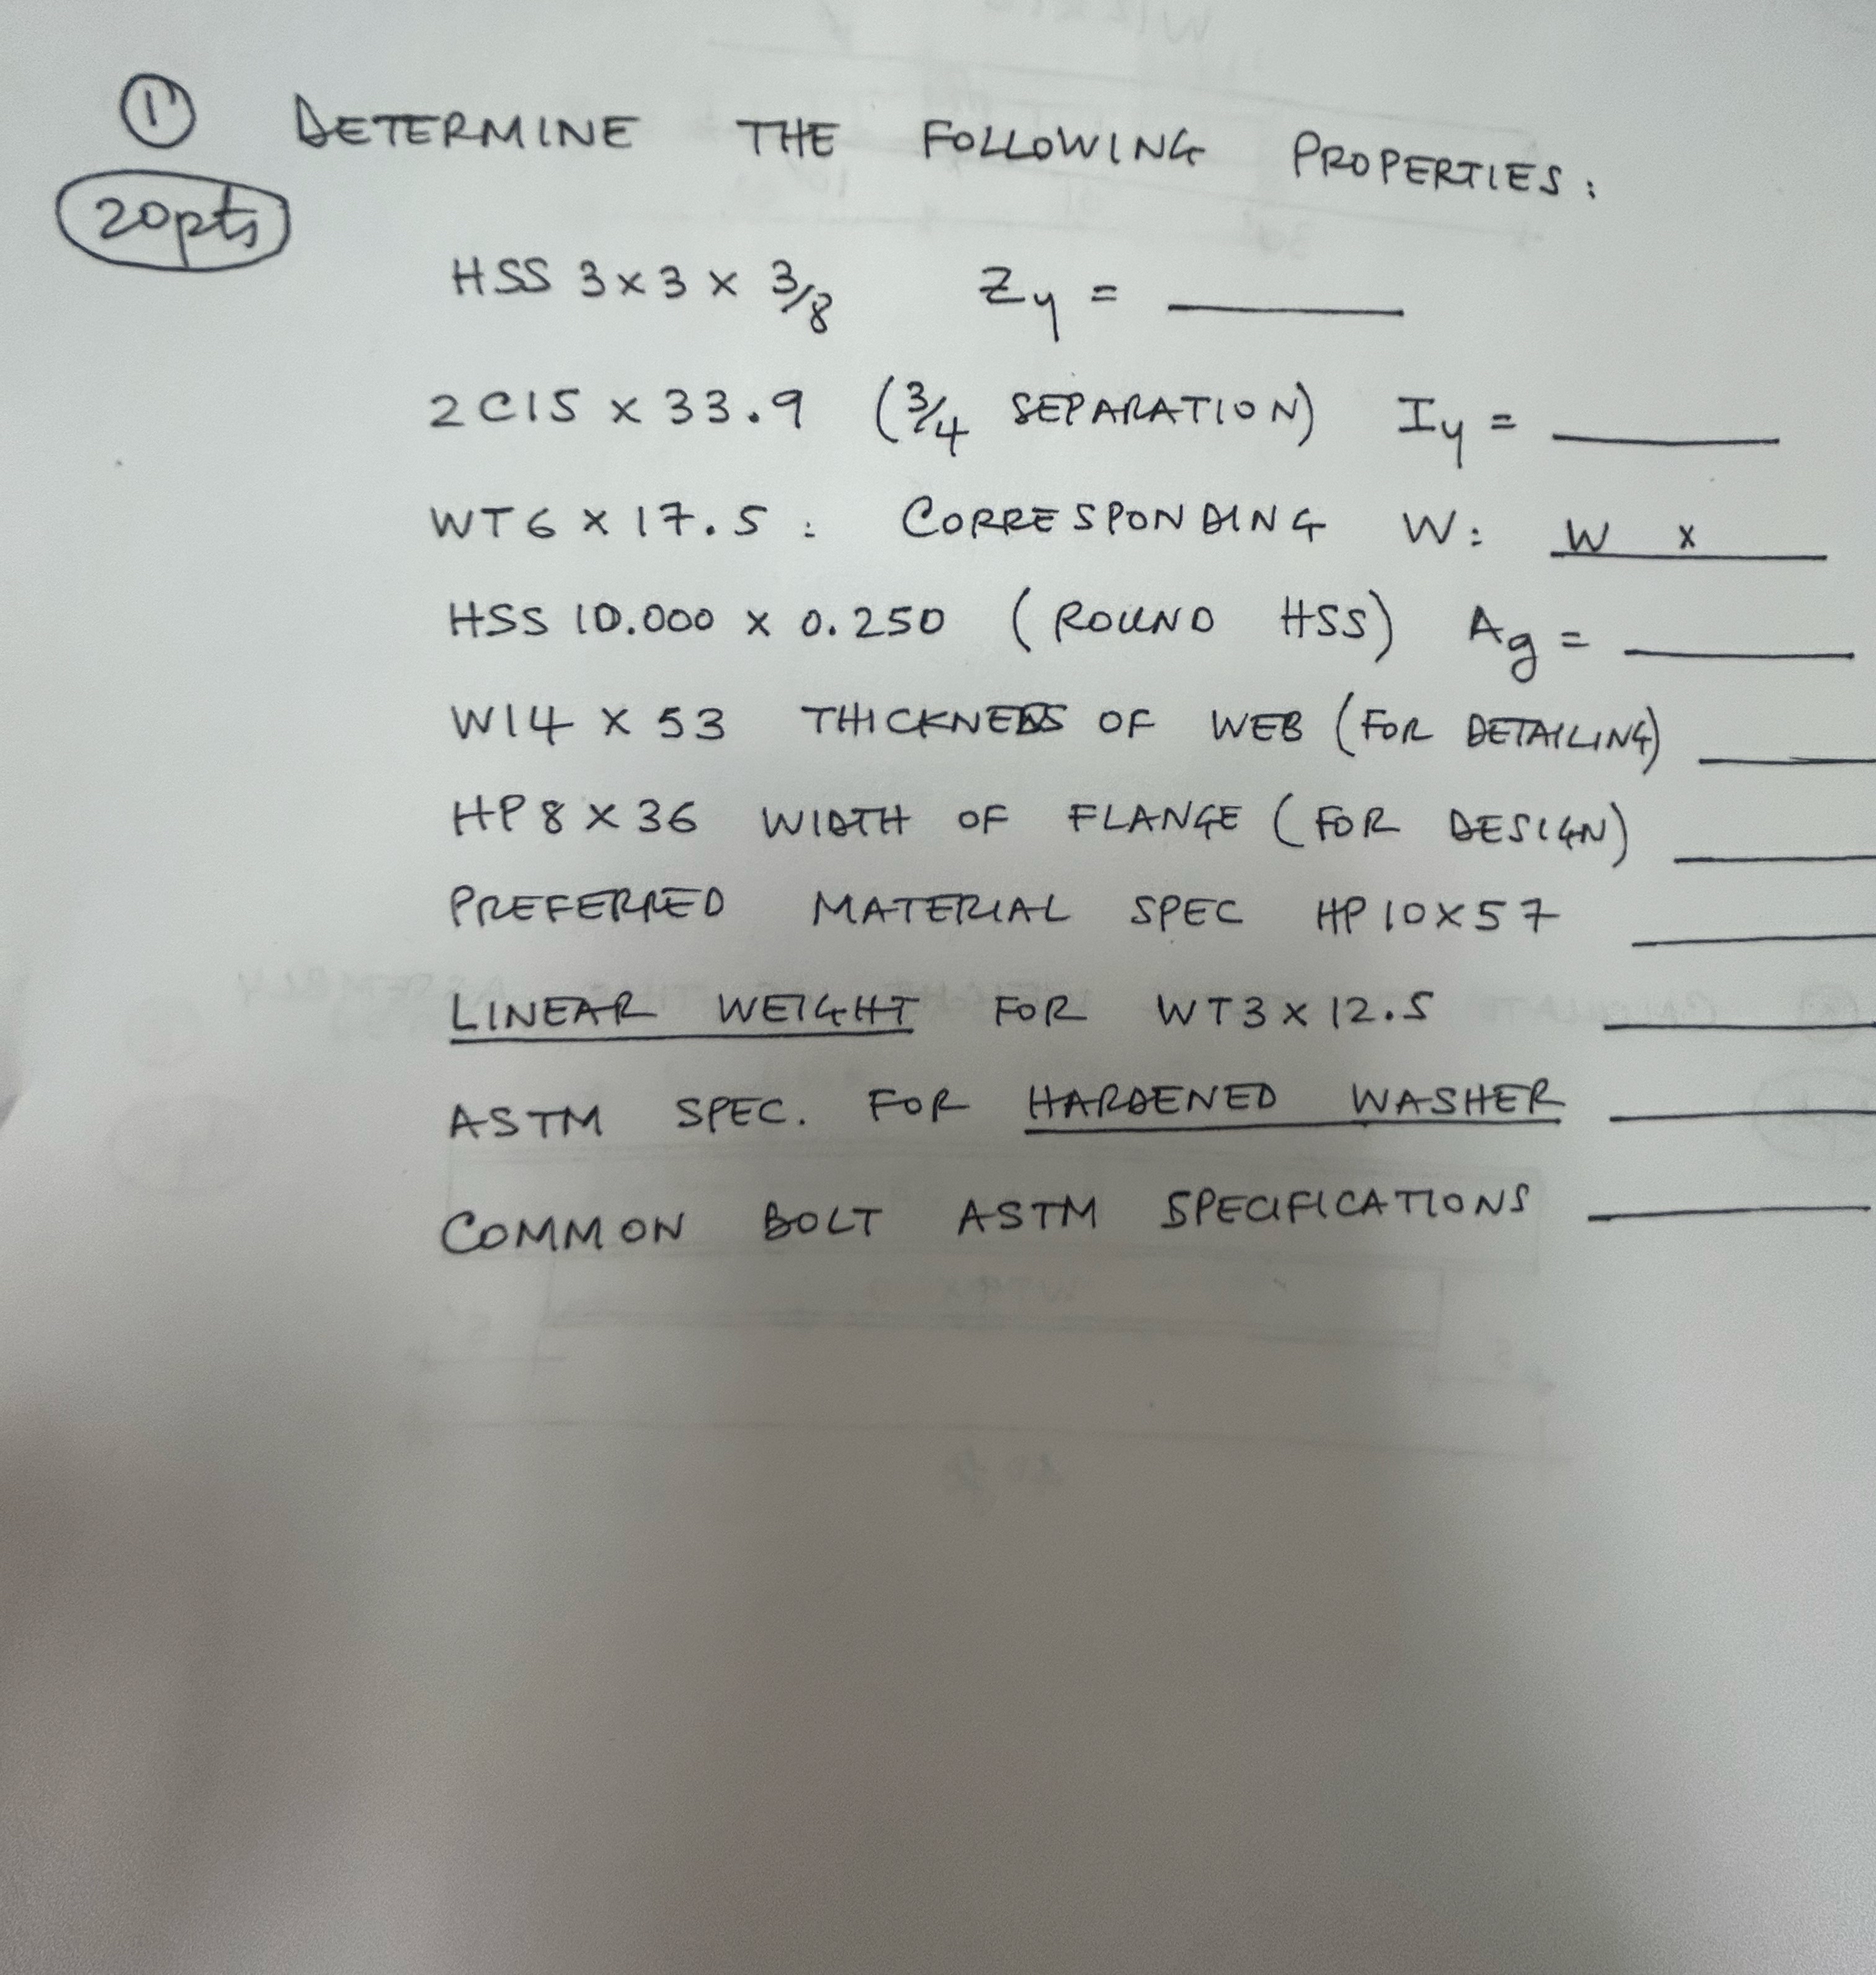 ① DETERMINE THE FOLLOWING PROPERTIES:
20pts
HSS 3x3 x 3/8 Zy = ____
2C15 x 33.9 (3/4 SEPARATION) Iy = ____
WT6 x 17.5: CORRESPONDING W: W x
HSS 10.000 x 0.250 (ROUND HSS) Ag = ____
W14 x 53 THICKNESS OF WEB (FOR DETAILING) ____
HP8 x 36 WIDTH OF FLANGE (FOR DESIGN) ____
PREFERRED MATERIAL SPEC HP10x57 ____
LINEAR WEIGHT FOR WT3 x 12.5 ____
ASTM SPEC. FOR HARDENED WASHER ____
COMMON BOLT ASTM SPECIFICATIONS ____